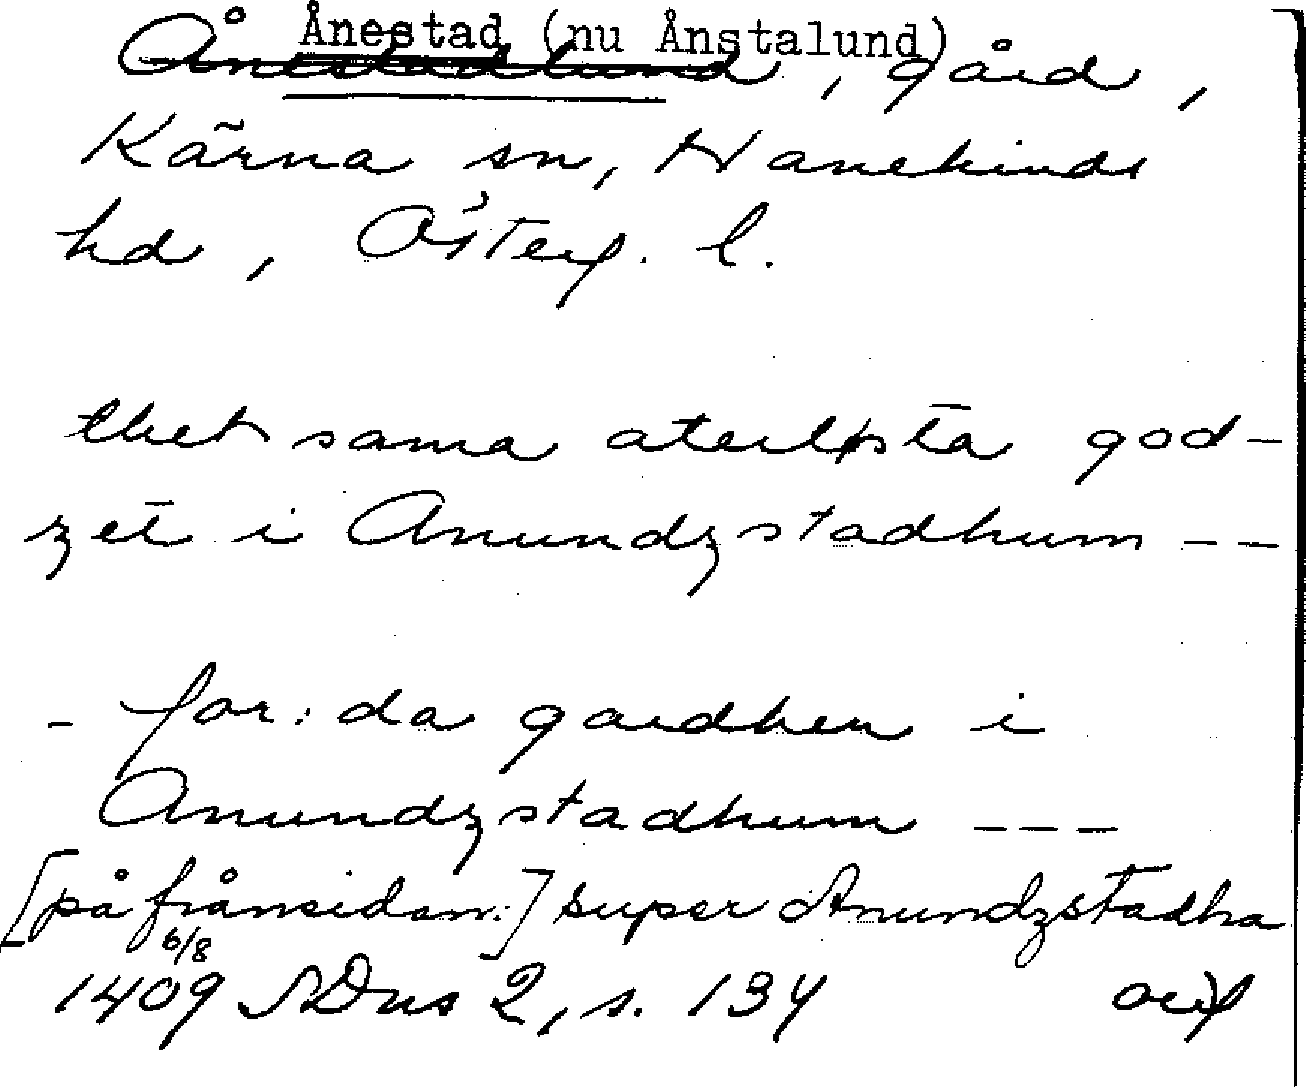 Ånestad (nu Ånstalund)
Ånestadlund, gård,
Kärna sn, Hanekinds
hd, Österg. l.
thet sama aterløsta god-
zet i Anundzstadhum --
- for:da gardhen i
Anundzstadhum ---
[på frånsidan:] super Anundzstadha
6/8
1409 SDns 2, s. 134 orig